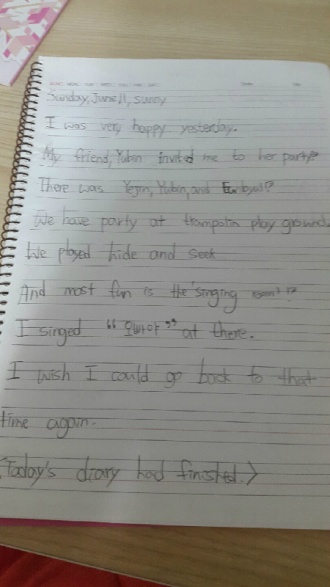 Sunday, June 11, sunny
I was very happy yesterday.
My friend, Yubin invited me to her party?
There was Yejin, Yubin, and Eunbyul?
We have party at trampolin play ground.
We played hide and seek
And most fun is the "singing
I singed " " at there.
I wish I could go back to that
time again.
<Today's diary had finished.>